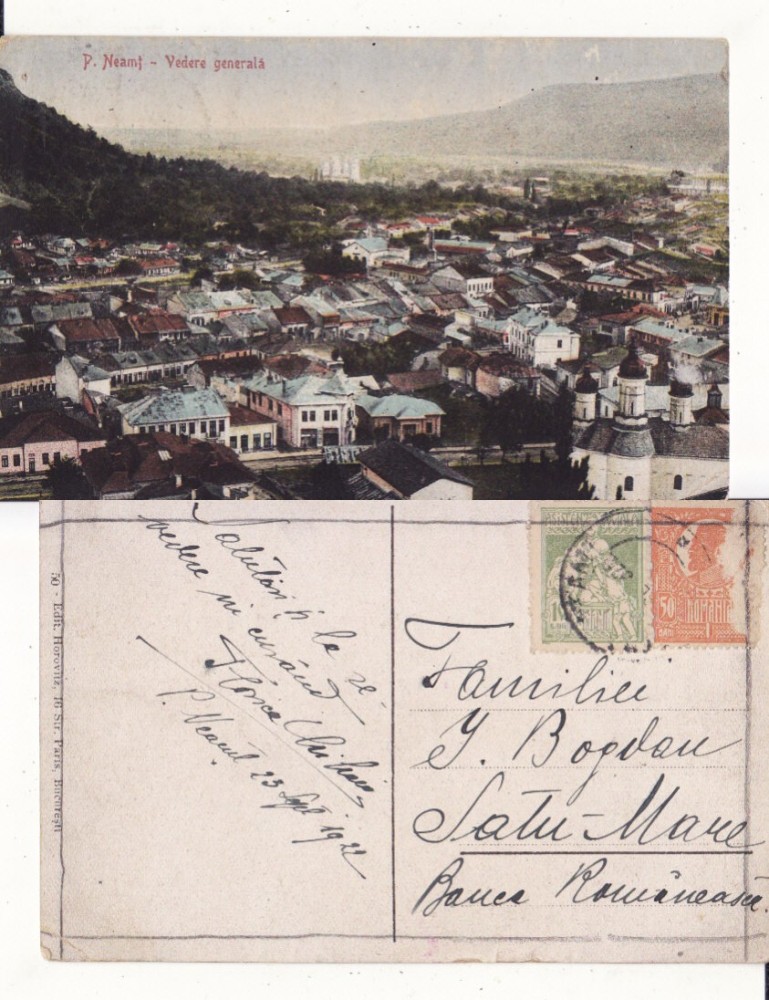 P. Neamţ - Vedere generală
50 - Edit. Horovitz, 16 Str. Paris, Bucureşti
Salutări şi la re-
vedere în curând
Florica
P. Neamţ 23 Sept 1922
50 ROMANIA
BANI
Familiei
I. Bogdan
Satu-Mare
Banca Românească